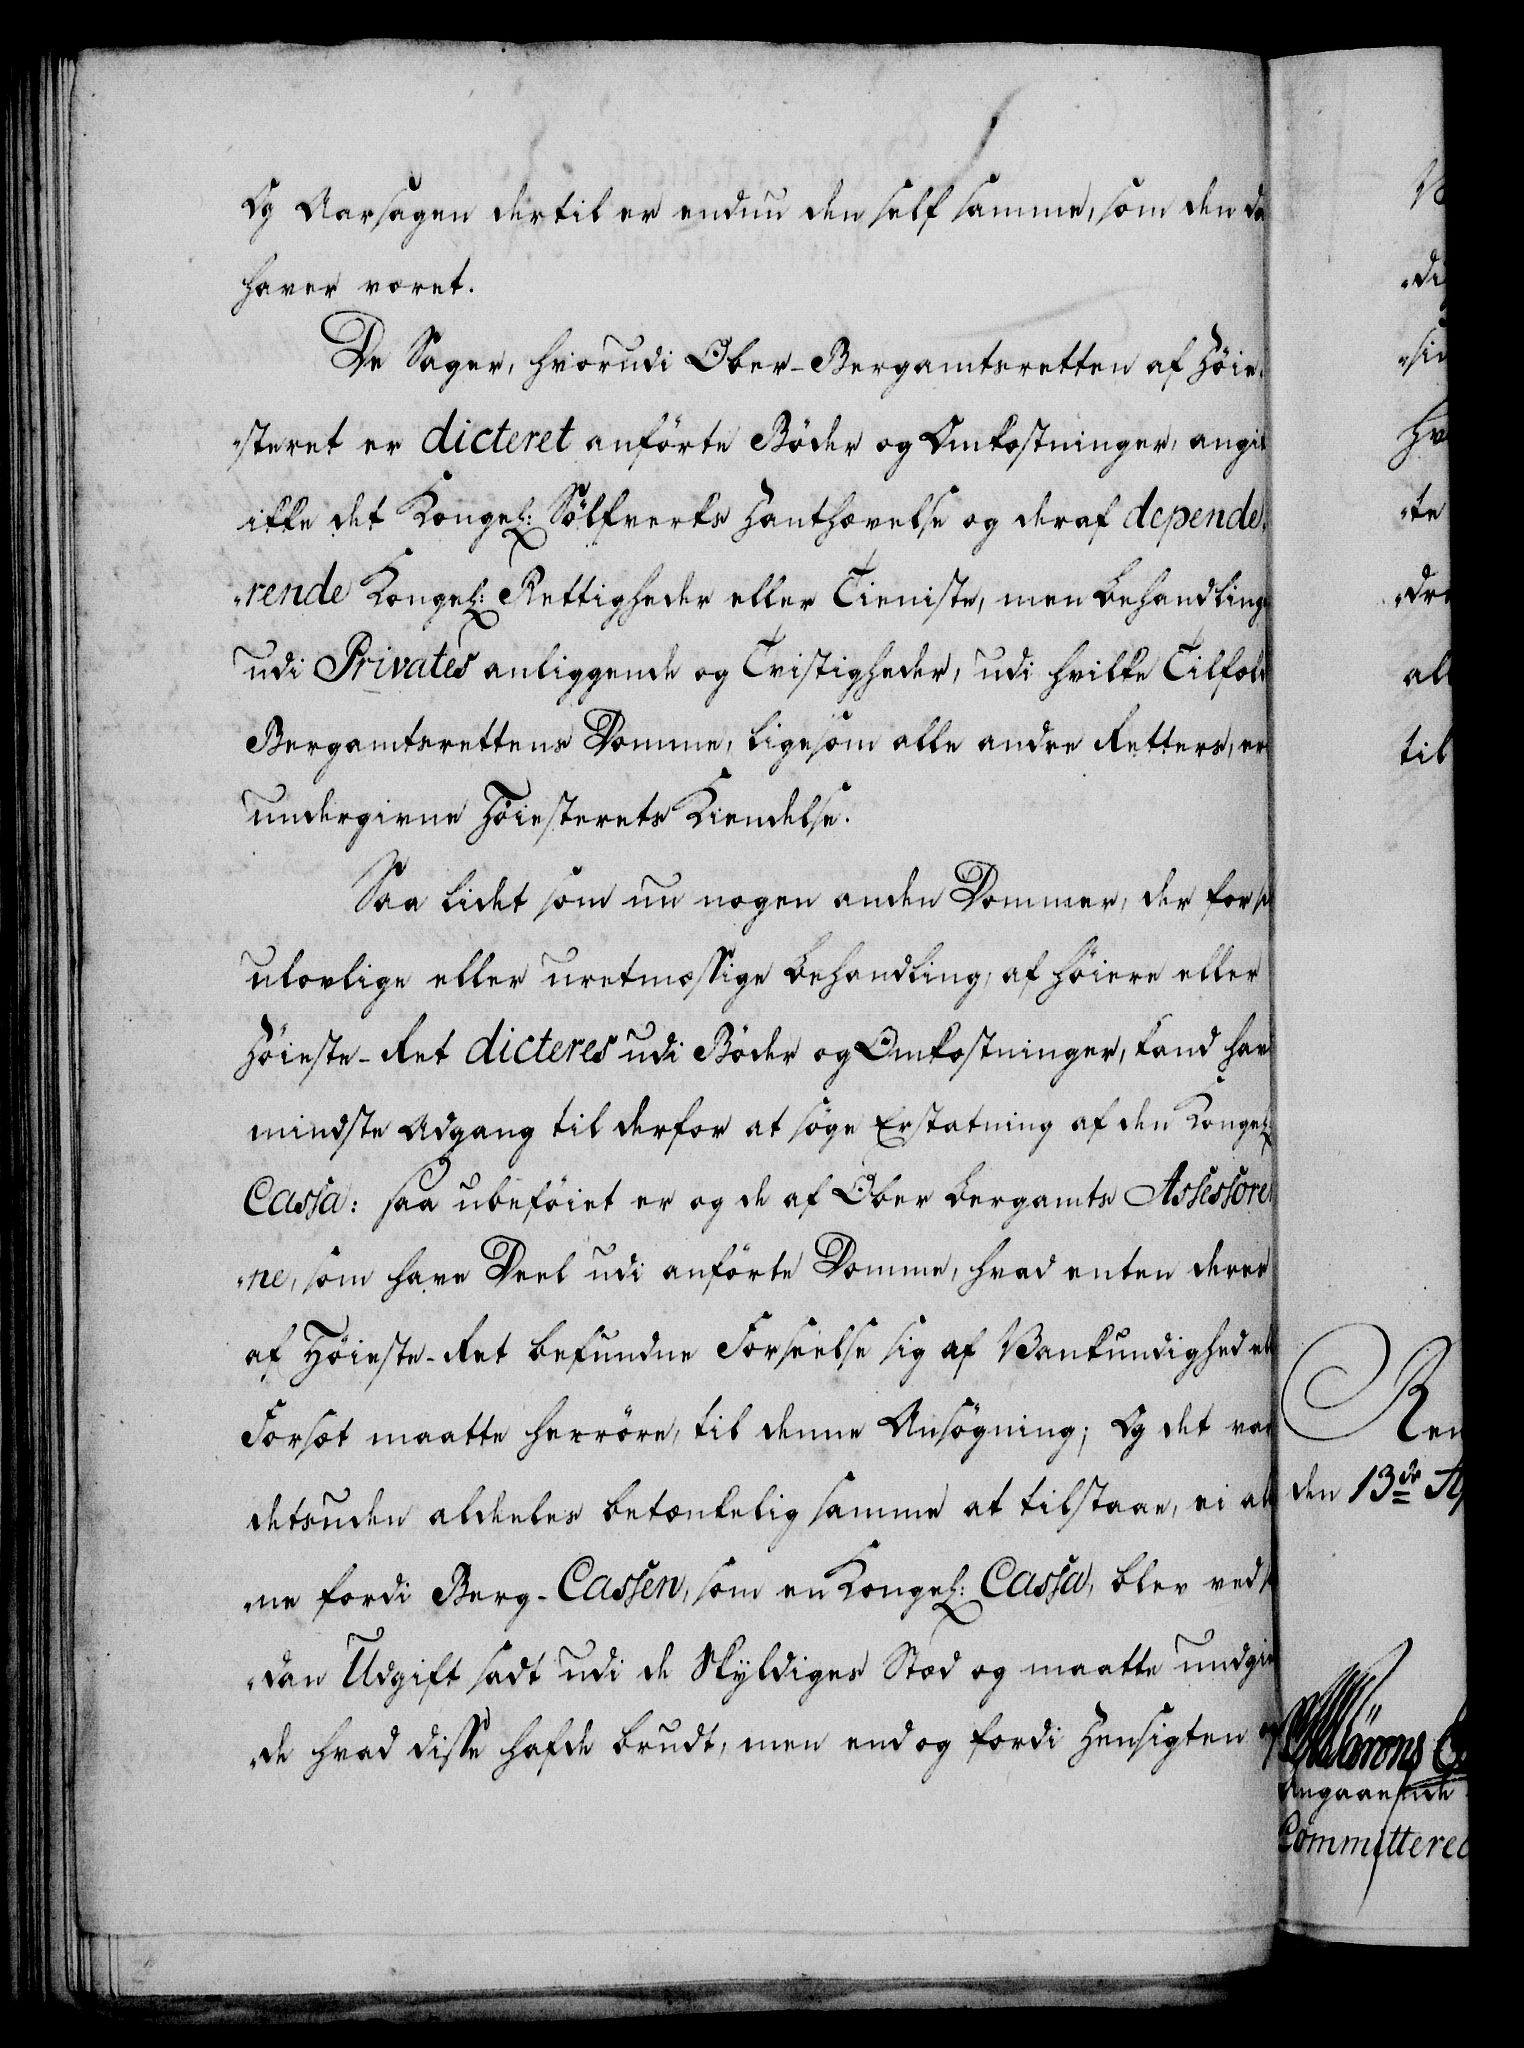 Og Aarsagen dertil er endnu den self samme, som den da
haver været.
De Sager, hvorudi Ober-Bergamtsretten af Höie-
„steret er dicteret anförte Böder og Omkostninger, angik
ikke det Kongel: Sölfverks Hanthævelse og deraf depende„
„rende Kongel: Rettigheder eller Tieniste, men Behandling
udi Privates anliggende og Tvistigheder, udi hvilke Tilfæld
Bergamtsrettens Domme, ligesom alle andre Retters, er
undergivne Höiesterets Kiendelse.
Saa lidet som nu nogen anden Dommer, der for
ulovlige eller uretmæssige Behandling, af höiere eller
Höieste-Ret dicteres udi Böder og Omkostninger, kand have
mindste Adgang til derfor at söge Erstatning af den Kongel:
Cassa: saa ubeföiet er og de af Ober Bergamts Assessore„
„ne, som have Deel udi anförte Domme, hvad enten deres
af Höieste-Ret befundne Forseelse sig af Vankundighed ell
Forsæt maatte herröre, til denne Ansögning; Og det var
detsuden aldeeles betænkelig samme at tilstaae, ei all
„ne fordi Berg-Cassen, som en Kongel: Cassa, blev ved
„dan Udgift sadt udi de Skyldiges Stæd og maatte undgiel
„de hvad disse hafde brudt, men end og fordi Hensigten af
di
sin
hv
„te
„dre
all
til
Ren
den 13de Ap
Angaaende
Committered